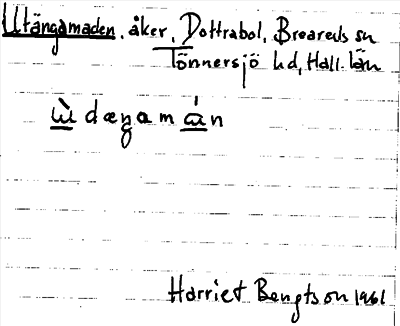 Utängamaden, åker, Dottrabol, Breareds sn
Tönnersjö hd, Hall. län
ùdæŋamán
Harriet Bengtson 1961